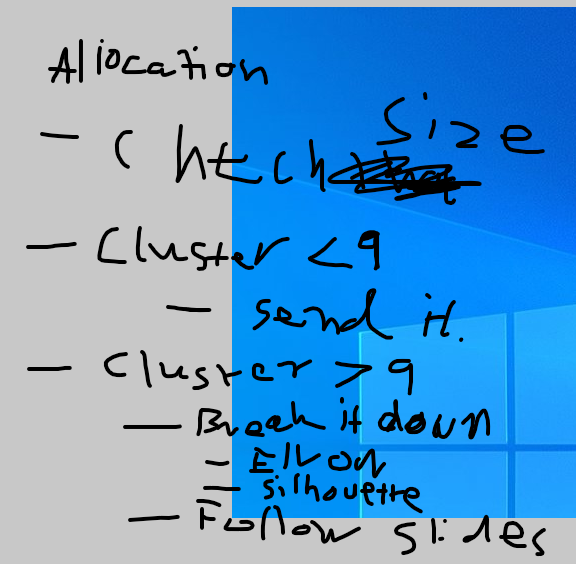 Allocation
- Chtch size
- Cluster < 9
- send it.
- Cluster > 9
- Break it down
- Elbow
- silhouette
- Follow slides